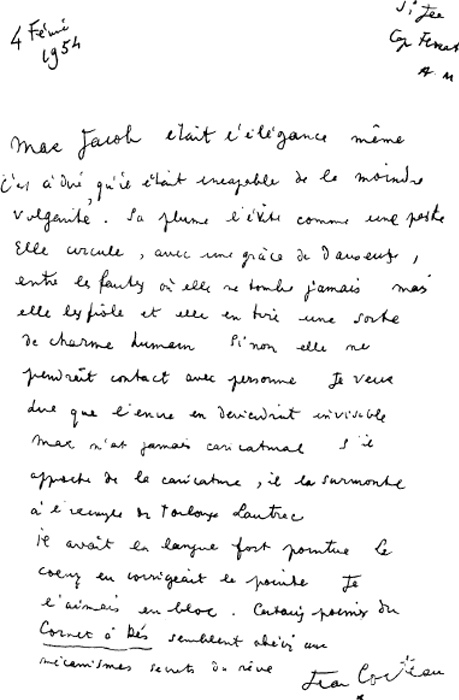 4 Fév
1954
St Jea
Cap Ferrat
A.M
Max Jacob était l'élégance même
C'est à dire, qu'il était incapable de la moindre
vulgarité. Sa plume l'évite comme une peste
Elle circule, avec une grâce de danseuse,
entre les fautes où elle ne tombe jamais mais
elle les frôle et elle en tire une sorte
de charme humain Sinon elle ne
prendrait contact avec personne Je veux
dire que l'encre en deviendrait invisible
Max n'est jamais caricatural S'il
approche de la caricature, il la surmonte
à l'exemple de Toulouse Lautrec
Il avait la langue fort pointue Le
coeur en corrigeait la pointe Je
l'aimais en bloc. Certains poèmes du
Cornet à Dés semblent obéir aux
mécanismes secrets du rêve
Jean Cocteau
*